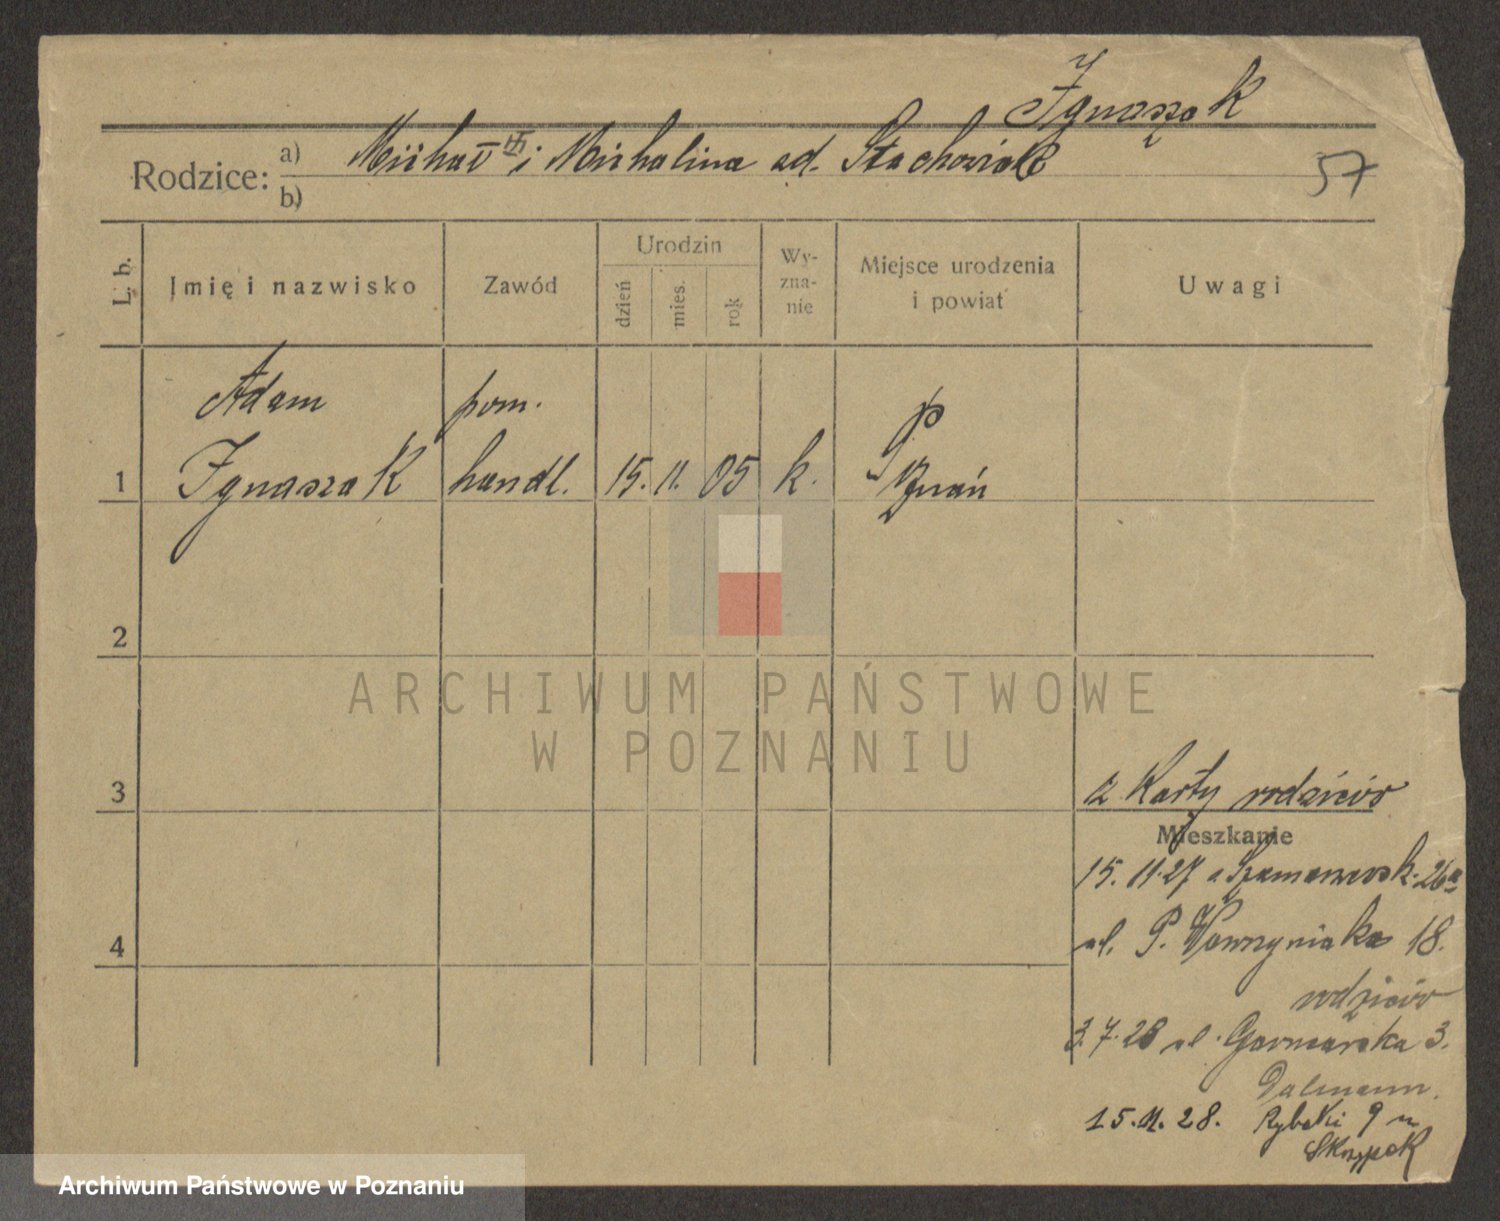 Ignaszak
Rodzice: a) Michał i Michalina ad. Stachowiak
b)
57
L. b.
Imię i nazwisko
Zawód
Urodzin
dzień
mies.
rok
Wy-
zna-
nie
Miejsce urodzenia
i powiat
Uwagi
Adam
pom.
1
Ignaszak
handl.
15.
11.
05
k.
P
Poznań
2
ARCHIWUM PAŃSTWOWE
W POZNANIU
3
z Karty rodziców
Mieszkanie
15. 11. 27 Szamarzewsk. 26a
ul. P. Wawrzyniaka 18.
4
rodziców
3. 7. 28 ul. Garncarska 3.
Dalmann.
15. 11. 28. Rybaki 9 u
Skrzypek
Archiwum Państwowe w Poznaniu